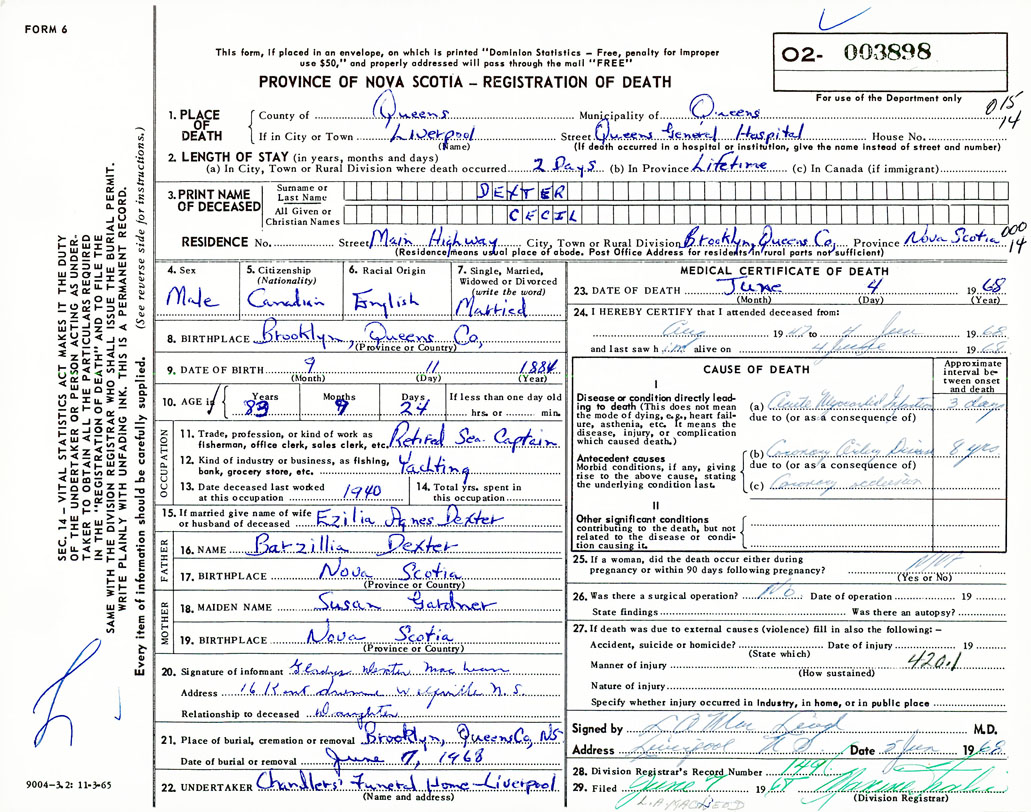 FORM 6
This form, if placed in an envelope, on which is printed "Dominion Statistics – Free, penalty for improper
use $50," and properly addressed will pass through the mail "FREE"
PROVINCE OF NOVA SCOTIA – REGISTRATION OF DEATH
O2- 003898
For use of the Department only
015
14
1. PLACE OF DEATH
County of Queens Municipality of Queens
If in City or Town Liverpool Street Queens General Hospital House No.
(Name) (If death occurred in a hospital or institution, give the name instead of street and number)
2. LENGTH OF STAY (in years, months and days)
(a) In City, Town or Rural Division where death occurred 2 Days (b) In Province Lifetime (c) In Canada (if immigrant)
3. PRINT NAME OF DECEASED
Surname or Last Name DEXTER
All Given or Christian Names CECIL
RESIDENCE No. Street Main Highway City, Town or Rural Division Brooklyn, Queens Co, Province Nova Scotia
000
14
(Residence means usual place of abode. Post Office Address for residents in rural parts not sufficient)
4. Sex
Male
5. Citizenship
(Nationality)
Canadian
6. Racial Origin
English
7. Single, Married,
Widowed or Divorced
(write the word)
Married
8. BIRTHPLACE Brooklyn, Queens Co,
(Province or Country)
9. DATE OF BIRTH 9 11 1884
(Month) (Day) (Year)
10. AGE if Years Months Days If less than one day old
83 9 24 hrs. or min.
OCCUPATION
11. Trade, profession, or kind of work as
fisherman, office clerk, sales clerk, etc. Retired Sea Captain
12. Kind of industry or business, as fishing,
bank, grocery store, etc. Yachting
13. Date deceased last worked
at this occupation 1940
14. Total yrs. spent in
this occupation
15. If married give name of wife
or husband of deceased Ezilia Agnes Dexter
FATHER
16. NAME Barzillia Dexter
17. BIRTHPLACE Nova Scotia
(Province or Country)
MOTHER
18. MAIDEN NAME Susan Gardner
19. BIRTHPLACE Nova Scotia
(Province or Country)
20. Signature of informant Gladys Dexter Mac
Address 16 Kent Avenue Wolfville N.S.
Relationship to deceased Daughter
21. Place of burial, cremation or removal Brooklyn, Queens Co, NS
Date of burial or removal June 7, 1968
22. UNDERTAKER Chandlers' Funeral Home - Liverpool
(Name and address)
MEDICAL CERTIFICATE OF DEATH
23. DATE OF DEATH June 4 1968
(Month) (Day) (Year)
24. I HEREBY CERTIFY that I attended deceased from:
Aug 19 to 4 Jun 1968
and last saw him alive on 4 June 1968
CAUSE OF DEATH
Approximate
interval between
onset
and death
I
Disease or condition directly leading
to death (This does not
mean the mode of dying, e.g., heart failure,
asthenia, etc. It means the
disease, injury, or complication
which caused death.)
(a) Acute Myocardial Infarction 3 days
due to (or as a consequence of)
Antecedent causes
Morbid conditions, if any, giving
rise to the above cause, stating
the underlying condition last.
(b) Coronary Artery Disease 8 yrs
due to (or as a consequence of)
(c) Coronary occlusion
II
Other significant conditions
contributing to the death, but not
related to the disease or condition
causing it.
25. If a woman, did the death occur either during
pregnancy or within 90 days following pregnancy?
(Yes or No)
26. Was there a surgical operation? No Date of operation 19
State findings Was there an autopsy?
27. If death was due to external causes (violence) fill in also the following: –
Accident, suicide or homicide? Date of injury 19
(State which)
Manner of injury 420.1
(How sustained)
Nature of injury
Specify whether injury occurred in industry, in home, or in public place
Signed by M.D.
Address Liverpool N.S. Date 5 Jun 1968
28. Division Registrar's Record Number 149
29. Filed June 7 1968
(Division Registrar)
L.A. MACLEOD
SEC. 14 – VITAL STATISTICS ACT MAKES IT THE DUTY
OF THE UNDERTAKER OR PERSON ACTING AS UNDER-
TAKER TO OBTAIN ALL THE PARTICULARS REQUIRED
IN THE "REGISTRATION OF DEATH" AND TO FILE THE
SAME WITH THE DIVISION REGISTRAR WHO SHALL ISSUE THE BURIAL PERMIT.
WRITE PLAINLY WITH UNFADING INK. THIS IS A PERMANENT RECORD.
Every item of information should be carefully supplied. (See reverse side for instructions.)
9004-3.2: 11-3-65